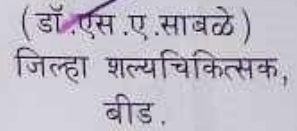 (डॉ.एस.ए.साबळे)
जिल्हा शल्यचिकित्सक,
बीड.